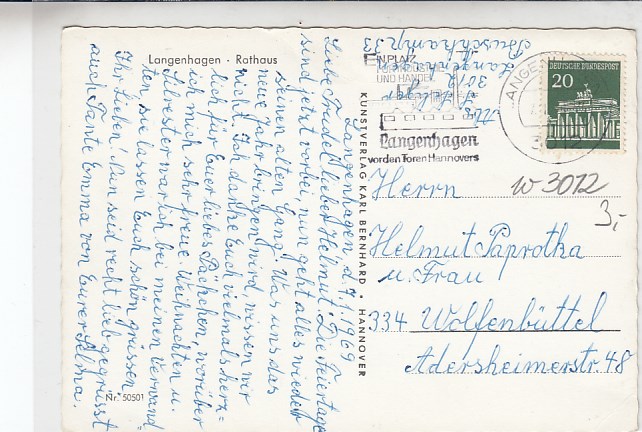 Langenhagen - Rathaus
Langenhagen, d. 7.1.1969
Liebe Friedel, lieber Helmut! Die Feiertage
sind jetzt vorbei, nun geht alles wieder
seinen alten Gang. Was uns das
neue Jahr bringen wird, wissen wir
nicht. Ich danke Euch vielmals herz-
lich für Euer liebes Päckchen, worüber
ich mich sehr freue. Weihnachten u.
Silvester war ich bei meinen Verwand
ten, sie lassen Euch schön grüssen.
Ihr Lieben! Nun seid recht lieb gegrüsst
auch Tante Emma von Eurer Selma.
Nr. 50501
KUNSTVERLAG KARL BERNHARD • HANNOVER
3012 Langenhagen
EINPLATZ
UND HANDEL
Langenhagen
vor den Toren Hannovers
DEUTSCHE BUNDESPOST
20
W 3012
3,-
Herrn
Helmut Paprotka
u. Frau
334 Wolfenbüttel
Adersheimerstr. 48